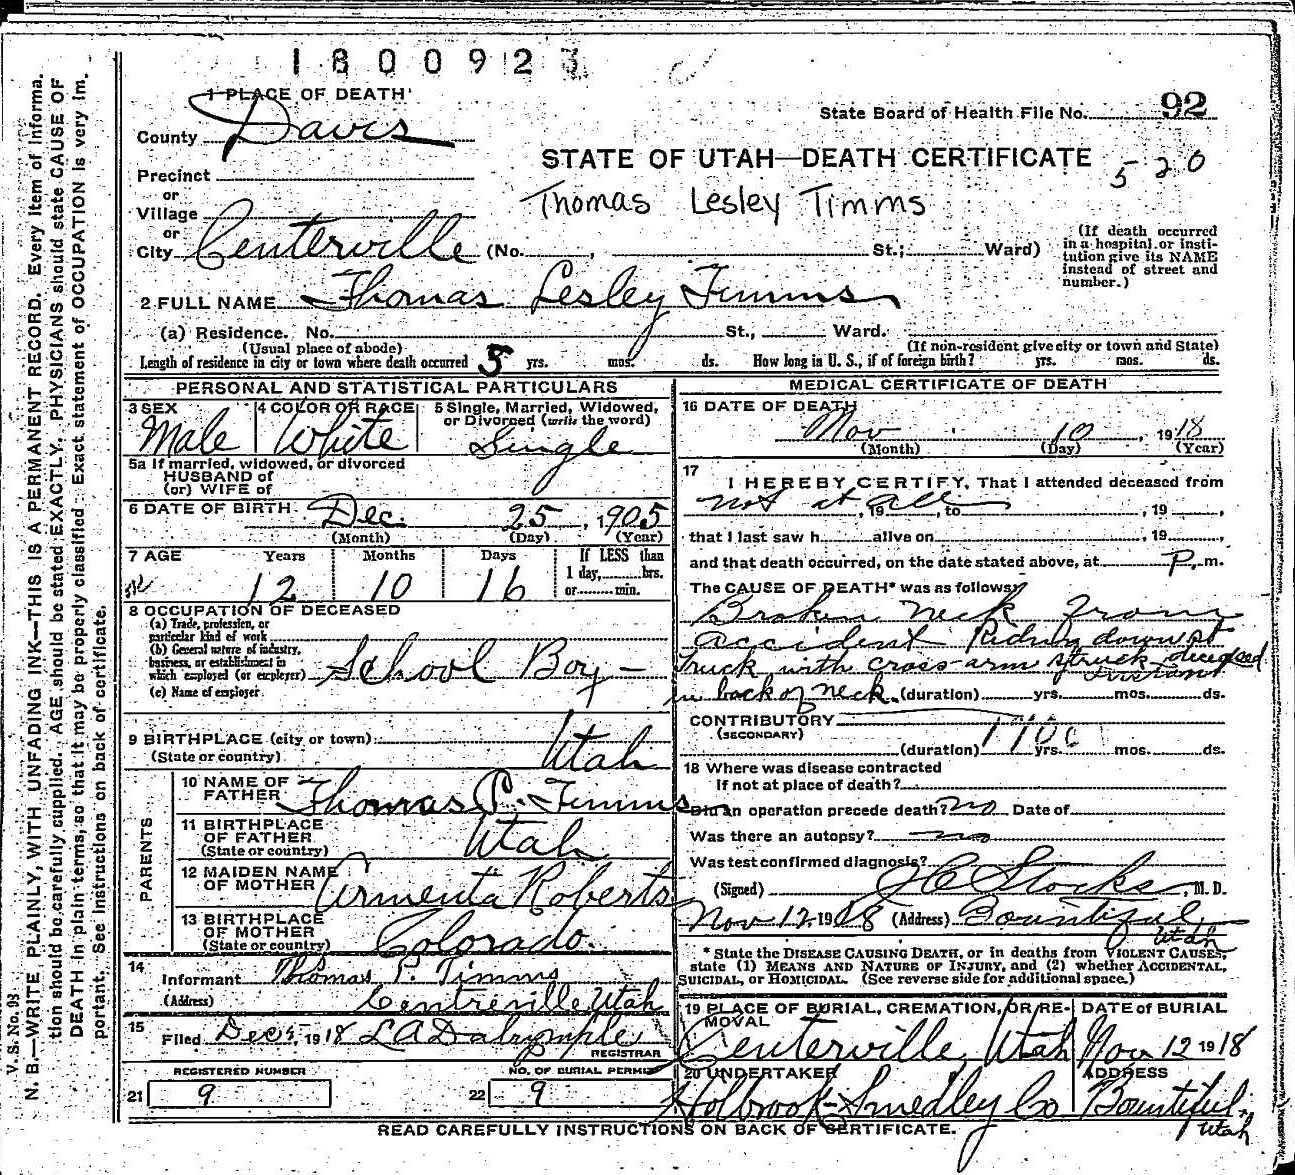 1800923
1 PLACE OF DEATH
State Board of Health File No. 92
County Davis
STATE OF UTAH—DEATH CERTIFICATE 520
Precinct
or
Thomas Lesley Timms
Village
or
City Centerville (No. , St.; Ward)
(If death occurred
in a hospital or insti-
tution give its NAME
instead of street and
number.)
2 FULL NAME Thomas Lesley Timms
(a) Residence. No. St., Ward.
(Usual place of abode) (If non-resident give city or town and State)
Length of residence in city or town where death occurred 5 yrs. mos. ds. How long in U. S., if of foreign birth? yrs. mos. ds.
PERSONAL AND STATISTICAL PARTICULARS
3 SEX 4 COLOR OR RACE 5 Single, Married, Widowed,
or Divorced (write the word)
Male White Single
5a If married, widowed, or divorced
HUSBAND of
(or) WIFE of
6 DATE OF BIRTH Dec. 25, 1905
(Month) (Day) (Year)
7 AGE Years Months Days If LESS than
1 day, hrs.
or min.
12 10 16
8 OCCUPATION OF DECEASED
(a) Trade, profession, or
particular kind of work
(b) General nature of industry,
business, or establishment in
which employed (or employer) School Boy—
(c) Name of employer
9 BIRTHPLACE (city or town) Utah
(State or country)
PARENTS
10 NAME OF
FATHER Thomas P. Timms
11 BIRTHPLACE
OF FATHER Utah
(State or country)
12 MAIDEN NAME
OF MOTHER Armenta Roberts
13 BIRTHPLACE
OF MOTHER Colorado.
(State or country)
14
Informant Thomas P. Timms
(Address) Centreville, Utah
15
Filed Dec 5, 1918 L A Dalrymple
REGISTRAR
REGISTERED NUMBER NO. OF BURIAL PERMIT
21 9 22 9
MEDICAL CERTIFICATE OF DEATH
16 DATE OF DEATH
Nov 10, 1918
(Month) (Day) (Year)
17
I HEREBY CERTIFY, That I attended deceased from
not at all, 19 , to , 19 ,
that I last saw h alive on , 19 ,
and that death occurred, on the date stated above, at P. m.
The CAUSE OF DEATH* was as follows:
Broken neck from
accident Riding down st
truck with cross-arm struck deceased
in back of neck. (duration) yrs. mos. ds.
CONTRIBUTORY
(SECONDARY)
(duration) yrs. mos. ds.
18 Where was disease contracted
If not at place of death?
Did an operation precede death? no Date of
Was there an autopsy? no
Was test confirmed diagnosis?
(Signed) J C Stocks, M. D.
Nov 12, 1918 (Address) Bountiful
Utah
* State the DISEASE CAUSING DEATH, or in deaths from VIOLENT CAUSES,
state (1) MEANS AND NATURE OF INJURY, and (2) whether ACCIDENTAL,
SUICIDAL, or HOMICIDAL. (See reverse side for additional space.)
19 PLACE OF BURIAL, CREMATION, OR RE-
MOVAL
DATE of BURIAL
Centerville, Utah Nov 12 1918
20 UNDERTAKER ADDRESS
Holbrook-Smedley Co Bountiful,
Utah
READ CAREFULLY INSTRUCTIONS ON BACK OF CERTIFICATE.
V. S. No. 93
N. B.—WRITE PLAINLY, WITH UNFADING INK—THIS IS A PERMANENT RECORD. Every item of informa-
tion should be carefully supplied. AGE should be stated EXACTLY. PHYSICIANS should state CAUSE OF
DEATH in plain terms, so that it may be properly classified. Exact statement of OCCUPATION is very im-
portant. See instructions on back of certificate.